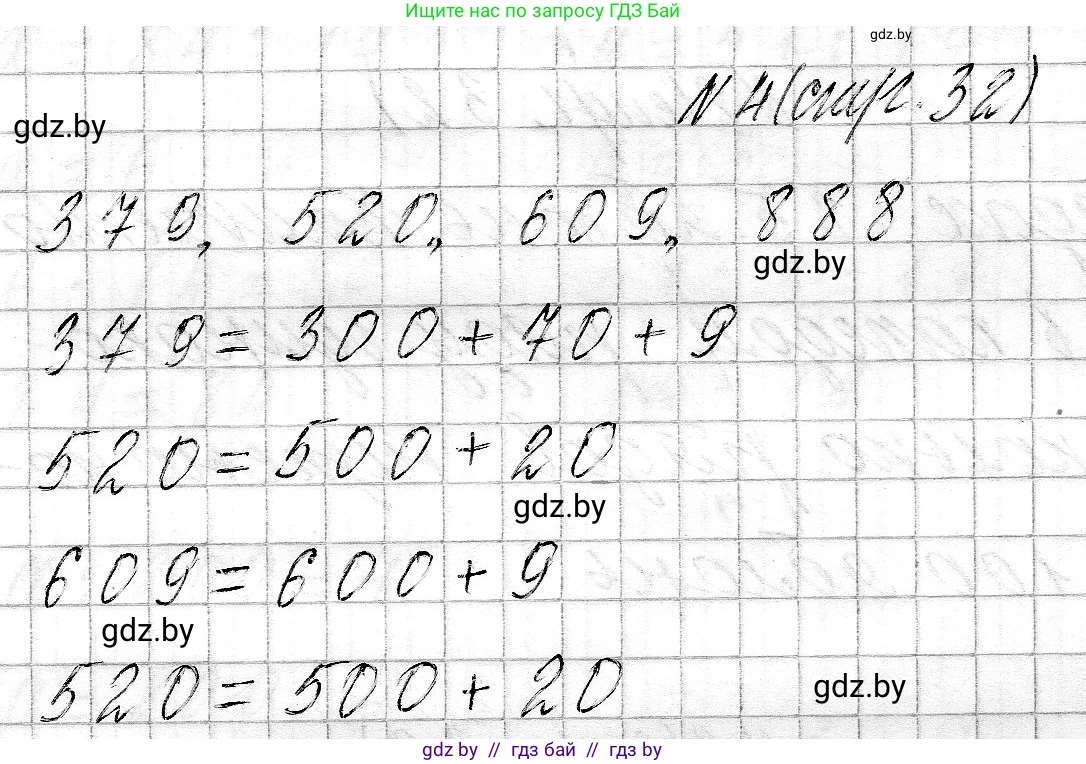 Ищите нас по запросу ГДЗ Бай
gdz.by
N 4 (стр. 32)
gdz.by
379, 520, 609, 888
gdz.by
379 = 300 + 70 + 9
520 = 500 + 20
gdz.by
609 = 600 + 9
gdz.by
520 = 500 + 20
gdz.by
gdz by // гдз бай // гдз by